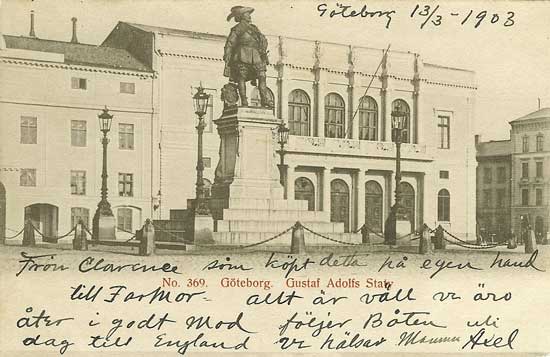 Göteborg 13/3-1903
Från Clarence som köpt detta på egen hand
No. 369. Göteborg. Gustaf Adolfs Staty
till FarMor- allt är väll vi äro
åter i godt Mod följer Båten uti
dag till England vi hälsar Mamma Axel